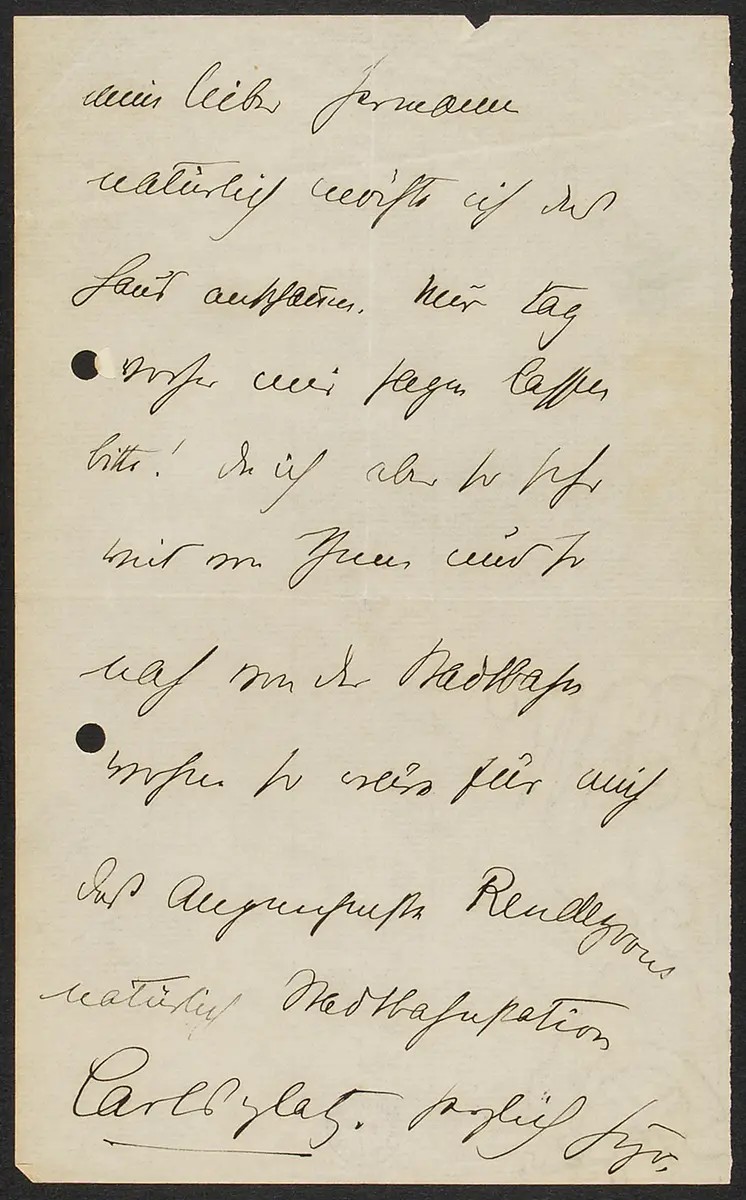 mein lieber Hermann
natürlich möchte ich das
Haus anschauen. Nur tag
vorher mir sagen lassen
bitte! da ich aber so sehr
weit von Ihnen und so
nah von der Stadtbahn
wohne so wäre für mich
das Angenehmste Rendezvous
natürlich Stadtbahnstation
Carlsplatz. herzlich Hugo.